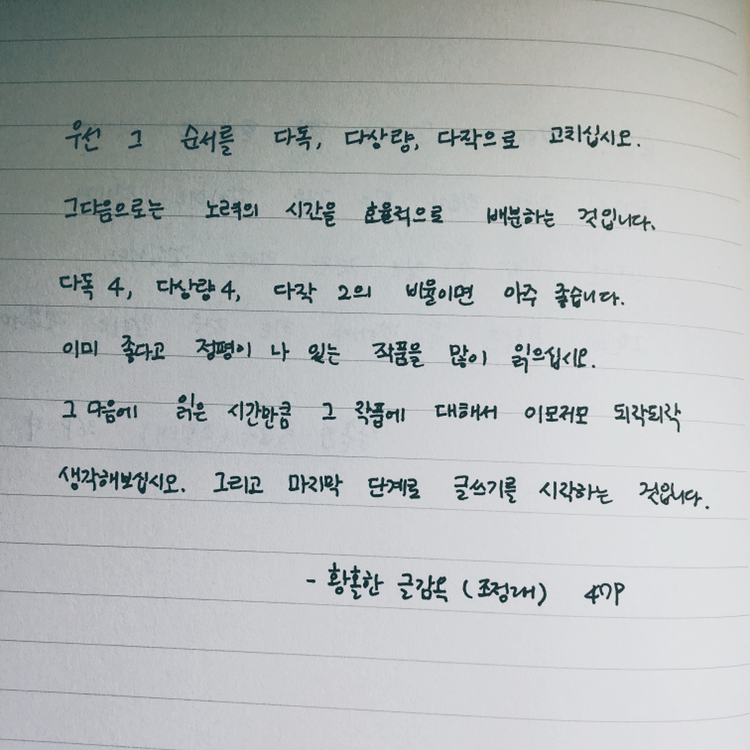 우선 그 순서를 다독, 다상량, 다작으로 고치십시오.
그다음으로는 노력의 시간을 효율적으로 배분하는 것입니다.
다독 4, 다상량 4, 다작 2의 비율이면 아주 좋습니다.
이미 좋다고 정평이 나 있는 작품을 많이 읽으십시오.
그 다음에 읽은 시간만큼 그 작품에 대해서 이모저모 되작되작
생각해보십시오. 그리고 마지막 단계로 글쓰기를 시작하는 것입니다.
- 황홀한 글감옥 (조정래) 47P